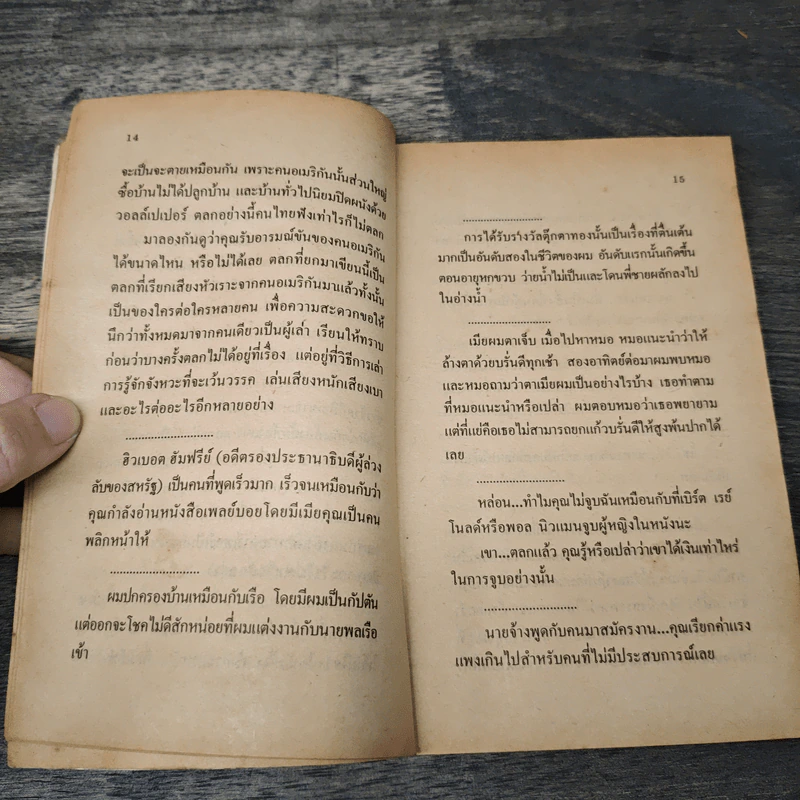 14
จะเป็นจะตายเหมือนกัน เพราะคนอเมริกันนั้นส่วนใหญ่
ซื้อบ้านไม่ได้ปลูกบ้าน และบ้านทั่วไปนิยมปิดผนังด้วย
วอลล์เปเปอร์ ตลกอย่างนี้คนไทยฟังเท่าไรก็ไม่ตลก
มาลองกันดูว่าคุณรับอารมณ์ขันของคนอเมริกัน
ได้ขนาดไหน หรือไม่ได้เลย ตลกที่ยกมาเขียนนี้เป็น
ตลกที่เรียกเสียงหัวเราะจากคนอเมริกันมาแล้วทั้งนั้น
เป็นของใครต่อใครหลายคน เพื่อความสะดวกขอให้
นึกว่าทั้งหมดมาจากคนเดียวเป็นผู้เล่า เรียนให้ทราบ
ก่อนว่าบางครั้งตลกไม่ได้อยู่ที่เรื่อง แต่อยู่ที่วิธีการเล่า
การรู้จักจังหวะที่จะเว้นวรรค เล่นเสียงหนักเสียงเบา
และอะไรต่ออะไรอีกหลายอย่าง
............................
ฮิวเบอต ฮัมฟรีย์ (อดีตรองประธานาธิบดีผู้ล่วง
ลับของสหรัฐ) เป็นคนที่พูดเร็วมาก เร็วจนเหมือนกับว่า
คุณกำลังอ่านหนังสือเพลย์บอยโดยมีเมียคุณเป็นคน
พลิกหน้าให้
............................
ผมปกครองบ้านเหมือนกับเรือ โดยมีผมเป็นกัปตัน
แต่ออกจะโชคไม่ดีสักหน่อยที่ผมแต่งงานกับนายพลเรือ
เข้า
15
............................
การได้รับรางวัลตุ๊กตาทองนั้นเป็นเรื่องที่ตื่นเต้น
มากเป็นอันดับสองในชีวิตของผม อันดับแรกนั้นเกิดขึ้น
ตอนอายุหกขวบ ว่ายน้ำไม่เป็นและโดนพี่ชายผลักลงไป
ในอ่างน้ำ
............................
เมียผมตาเจ็บ เมื่อไปหาหมอ หมอแนะนำว่าให้
ล้างตาด้วยบรั่นดีทุกเช้า สองอาทิตย์ต่อมาผมพบหมอ
และหมอถามว่าตาเมียผมเป็นอย่างไรบ้าง เธอทำตาม
ที่หมอแนะนำหรือเปล่า ผมตอบหมอว่าเธอพยายาม
แต่ที่แย่คือเธอไม่สามารถยกแก้วบรั่นดีให้สูงพ้นปากได้
เลย
............................
หล่อน...ทำไมคุณไม่จูบฉันเหมือนกับที่เบิร์ต เรย์
โนลด์หรือพอล นิวแมนจูบผู้หญิงในหนังนะ
เขา...ตลกแล้ว คุณรู้หรือเปล่าว่าเขาได้เงินเท่าไหร่
ในการจูบอย่างนั้น
............................
นายจ้างพูดกับคนมาสมัครงาน...คุณเรียกค่าแรง
แพงเกินไปสำหรับคนที่ไม่มีประสบการณ์เลย